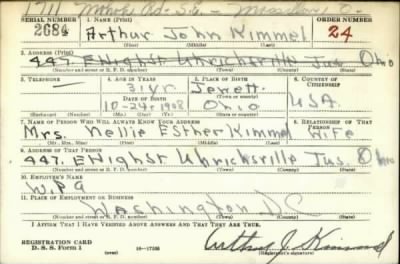 1711 Mohoks Rd - S.E. - Massillon O.
SERIAL NUMBER 1. NAME (Print) ORDER NUMBER
2684 Arthur John Kimmel 24
(First) (Middle) (Last)
2. ADDRESS (Print)
447. E High St Uhricksville Jus. Ohio
(Number and street or R. F. D. number) (Town) (County) (State)
3. TELEPHONE 4. AGE IN YEARS 5. PLACE OF BIRTH 6. COUNTRY OF CITIZENSHIP
31 yr Jewett
DATE OF BIRTH (Town or county)
10-24-1908 Ohio USA.
(Exchange) (Number) (Mo.) (Day) (Yr.) (State or country)
7. NAME OF PERSON WHO WILL ALWAYS KNOW YOUR ADDRESS 8. RELATIONSHIP OF THAT PERSON
Mrs. Nellie Esther Kimmel Wife
(Mr., Mrs., Miss) (First) (Middle) (Last)
9. ADDRESS OF THAT PERSON
447. E High St Uhricksville Jus. Ohio
(Number and street or R. F. D. number) (Town) (County) (State)
10. EMPLOYER'S NAME
W.P.A
11. PLACE OF EMPLOYMENT OR BUSINESS
Washington DC
(Number and street or R. F. D. number) (Town) (County) (State)
I AFFIRM THAT I HAVE VERIFIED ABOVE ANSWERS AND THAT THEY ARE TRUE.
REGISTRATION CARD
D. S. S. Form 1 (over) 16-17105 Arthur J. Kimmel
(Registrant's signature)